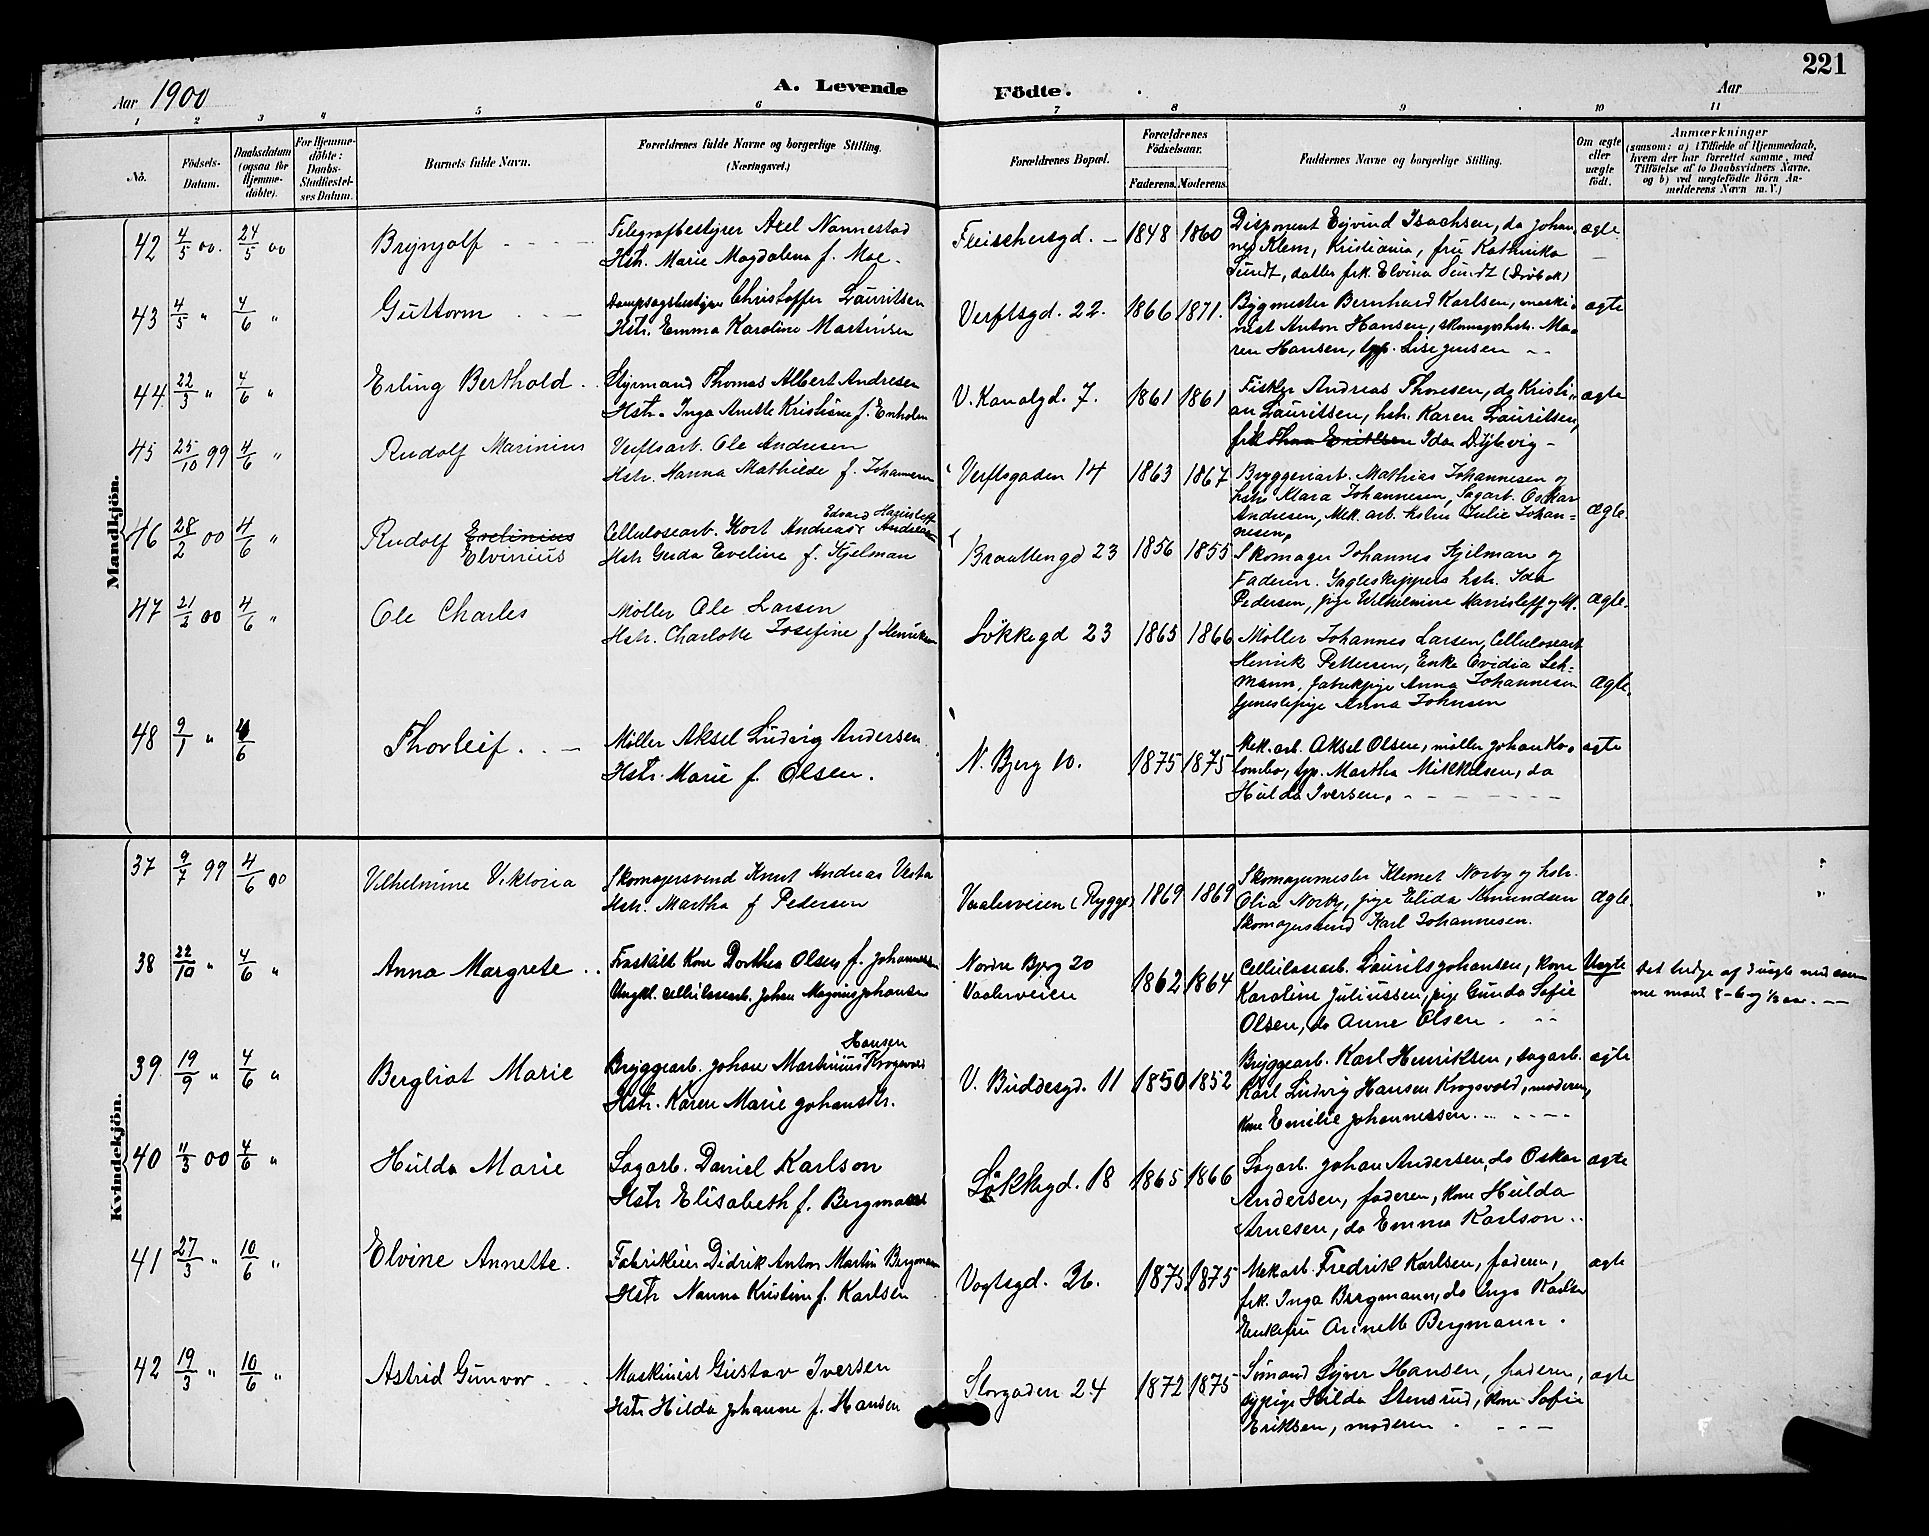 221
Aar 1900
A. Levende
Födte.
Aar
1 2 3 4 5 6 7 8 9 10 11
No.
Födsels-Datum.
Daabsdatum (ogsaa for Hjemmedöbte).
For Hjemmedöbte: Daabs-Stadfæstelses Datum.
Barnets fulde Navn.
Forældrenes fulde Navne og borgerlige Stilling. (Næringsvei.)
Forældrenes Bopæl.
Forældrenes Födselsaar.
Faderens. Moderens.
Faddernes Navne og borgerlige Stilling.
Om ægte eller uægte födt.
Anmærkninger
(saasom: a) i Tilfælde af Hjemmedaab, hvem der har forrettet samme, med Tilföielse af to Daabsvidners Navne, og b) ved uægtefödte Börn Anmelderens Navn m. V.)
Mandkjön.
42 4/5 00. 24/5 00 Brynjolf
Telegrafbestyrer Axel Nannestad
Hstr. Marie Magdalena f. Moe
Fleischersgd. 1848 1860
Disponent Eyvind Isachsen, do Johan-
nes Klem, Kristiania, fru Kathrinka
Sundt, datter frk. Elvina Sundt (Drøbak)
ægte
43 4/5 " 4/6 " Guttorm
Dampsagbestyrer Christoffer Lauritsen
Hstr. Emma Karoline Martinsen
Verftsgd. 22. 1866 1871.
Bygmester Bernhard Karlsen, maski-
nist Anton Hansen, skomagerhstr. Ma-
ren Hansen, typ. Lise Jensen
ægte
44. 22/3 " 4/6 " Erling Berthold
Styrmand Thomas Albert Andresen
Hstr. Inga Anette Kristine f. Enholm
V. Kanalgd. 7. 1861 1861
Fisker Andreas Thoresen, do Kristi-
an Lauritsen, hstr. Karen Lauritsen,
frk Ida Dybvig
ægte
45 25/10 99 4/6 " Rudolf Marinius
Verftsarb. Ole Andresen
Hstr. Nanna Mathilde f. Johannesen
Verftsgaden 14 1863 1867
Bryggeriarb. Mathias Johannesen og
hstr Klara Johannesen, Sagarb. Oskar
Andresen, Mek. arb. hstru Julie Johan-
nesen,
Ægte.
46 28/2 00 4/6 " Rudolf Evelinius
Elvinius
Edvard Harisleff
Cellulosearb. Kort Andreas Andresen
Hstr Gerda Eveline f. Kjelman
Braattengd 23 1856 1855
Skomager Johannes Kjelman og
Faderen. Jagteskippers hstr. Ida
Pedersen, pige Wilhelmine Harrisleff og M.
Ægte.
47 21/2 00 4/6 " Ole Charles
Møller Ole Larsen
Hstr. Charlotte Josefine f Henriksen
Løkkegd 23 1865 1866
Møller Johannes Larsen, Cellulosearb
Henrik Pettersen, Enke Ovidia Leh-
mann, fabrikpige Anna Johannesen
tjenestepige Anna Johnsen
Ægte.
48 9/1 " 4/6 Thorleif
Møller Aksel Ludvig Andersen
Hstr. Marie f. Olsen.
N. Bjerg 10. 1875 1875
Mek. arb. Aksel Olsen, møller Johan Ko-
lombo, typ. Martha Mikkelsen, do
Hulda Iversen.
ægte
Kvindekjön.
37 9/7 99 4/6 00 Vilhelmine Viktoria
Skomagersvend Knut Andreas Vestre
Hstr. Martha f Pedersen
Vaalerveien (Rygge) 1869 1869
Skomagermester Klemet Norby og hstr.
Olia Norby, pige Elida Amundsen
Skomagersvend Karl Johannesen.
Ægte.
38 22/10 " 4/6 " Anna Margrete
Fraskilt Kone Dorthea Olsen f. Johannessen
Ungkl. cellulosearb. Johan Magnus Johansen
Nordre Bjerg 20
Vaalerveien
1862 1864
Cellulosearb. Laurits Johansen, Kone
Karoline Juliussen, pige Gunda Sofie
Olsen, do Anne Olsen.
Uægte
Det tredje af 3 uægte med sam-
me mand 8 - 6 og ½ aar.
39. 19/9 " 4/6 " Bergliot Marie
Hansen
Bryggearb. Johan Martinius Krogsvold
Hstr. Karen Marie Johansdtr.
V. Buddesgd. 11 1850 1852
Bryggearb. Karl Henriksen, sagarb.
Karl Ludvig Hansen Krogsvold, moderen,
kone Emilie Johannessen
ægte
40 11/3 00 4/6 " Hulda Marie
Sagarb. Daniel Karlson
Hstr Elisabeth f. Bergman
Løkkegd. 18 1865 1866
Sagarb. Johan Andersen, do Oskar
Andersen, faderen, kone Hulda
Arnesen, do Emma Karlson
ægte
41 27/3 " 10/6 " Elvine Annette.
Fabrikeier Didrik Anton Martin Bergmann
Hstr Nanna Kristine f. Karlsen
Vogtsgd. 26. 1875 1875
Mekarb. Fredrik Karlsen, faderen,
frk. Inga Bergmann, do Inga Karlsen
Enkefru Annette Bergmann.
ægte
42 19/3 " 10/6 " Astrid Gunvor
Maskinist Gustav Iversen
Hstr Hilda Johanne f. Hansen
Storgaden 24 1872 1875
Sømand Syver Hansen, faderen,
sypige Hilda Stensrud, kone Sofie
Eriksen, moderen
ægte